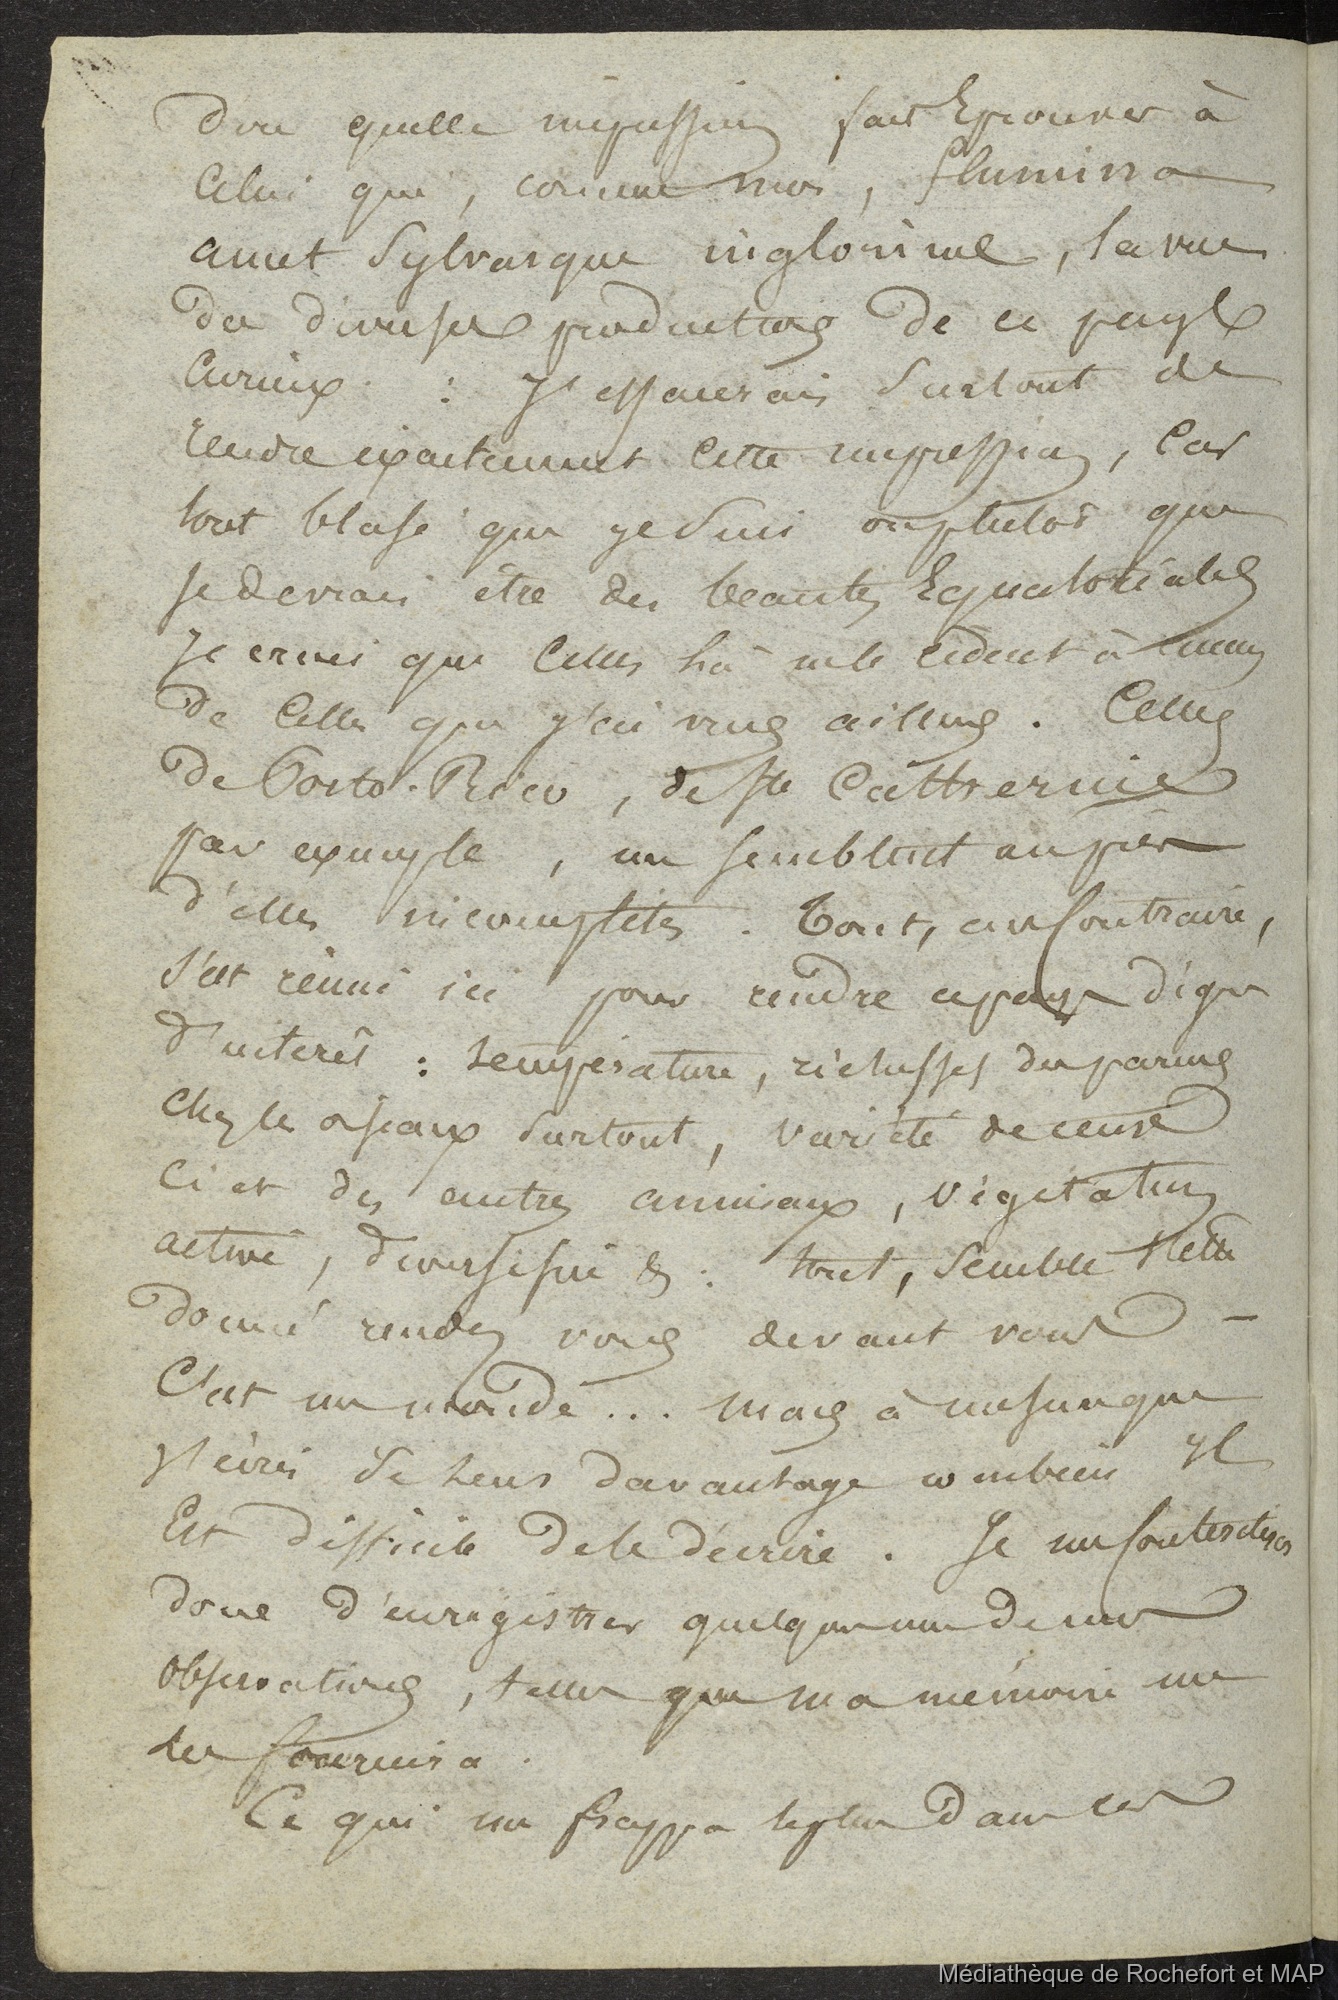 dire quelle impression fait Eprouver à
Celui qui, comme moi, flumina
amet Sylvasque inglorius, la vue
des diverses productions de ce pays
Curieux : J'essaierais Surtout de
rendre exactement Cette impression, Car
tout blasé que je Suis ou plutôt que
je devrais être des beautés Equatoriales
Je crois que Celles là ne le cèdent à aucune
de Celles que j'ai vues ailleurs. Celles
de Porto-Rico, de Ste Catherine
par exemple, me semblent auprès
d'elles incomplètes. Tout, au Contraire,
S'est réuni ici pour rendre ce pays digne
d'intérêt : température, richesses de parures
Chez les oiseaux Surtout, Variété de ceux
Ci et des autres animaux, Végétation
active, diversifiée & : tout, Semble s'être
donné rendez vous devant vous –
C'est un monde... mais à mesure que
J'écris Je sens davantage combien Il
Est difficile de le décrire. Je me Contenterai
donc d'enregistrer quelques unes de mes
Observations, telles que ma mémoire me
les fournira.
Ce qui me frappa le plus dans ces
Médiathèque de Rochefort et MAP